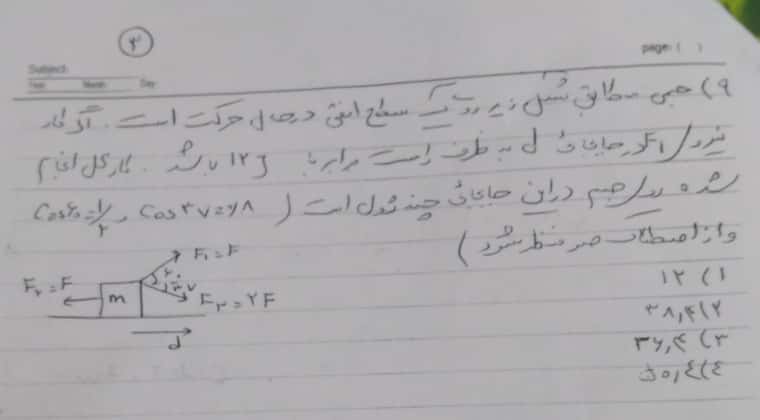 ۳
page: ( )
Subject:
Year Month Day
۹) جسمی مطابق شکل زیر روی یک سطح افقی در حال حرکت است. اگر کار
نیروی F۱ در جابجائی d به طرف راست برابر با ۱۲ J باشد. کار کل انجام
شده روی جسم در این جابجائی چند ژول است ( Cos۳۷=۰٫۸ و Cos۶۰=۱/۲
و از اصطکاک صرفنظر شود )
F۱=F
F۲=F
m
۶۰°
۳۷°
F۳=۲F
d
۱) ۱۲
۲) ۳۸,۴
۳) ۳۶,۴
۴) ۵۰,۴